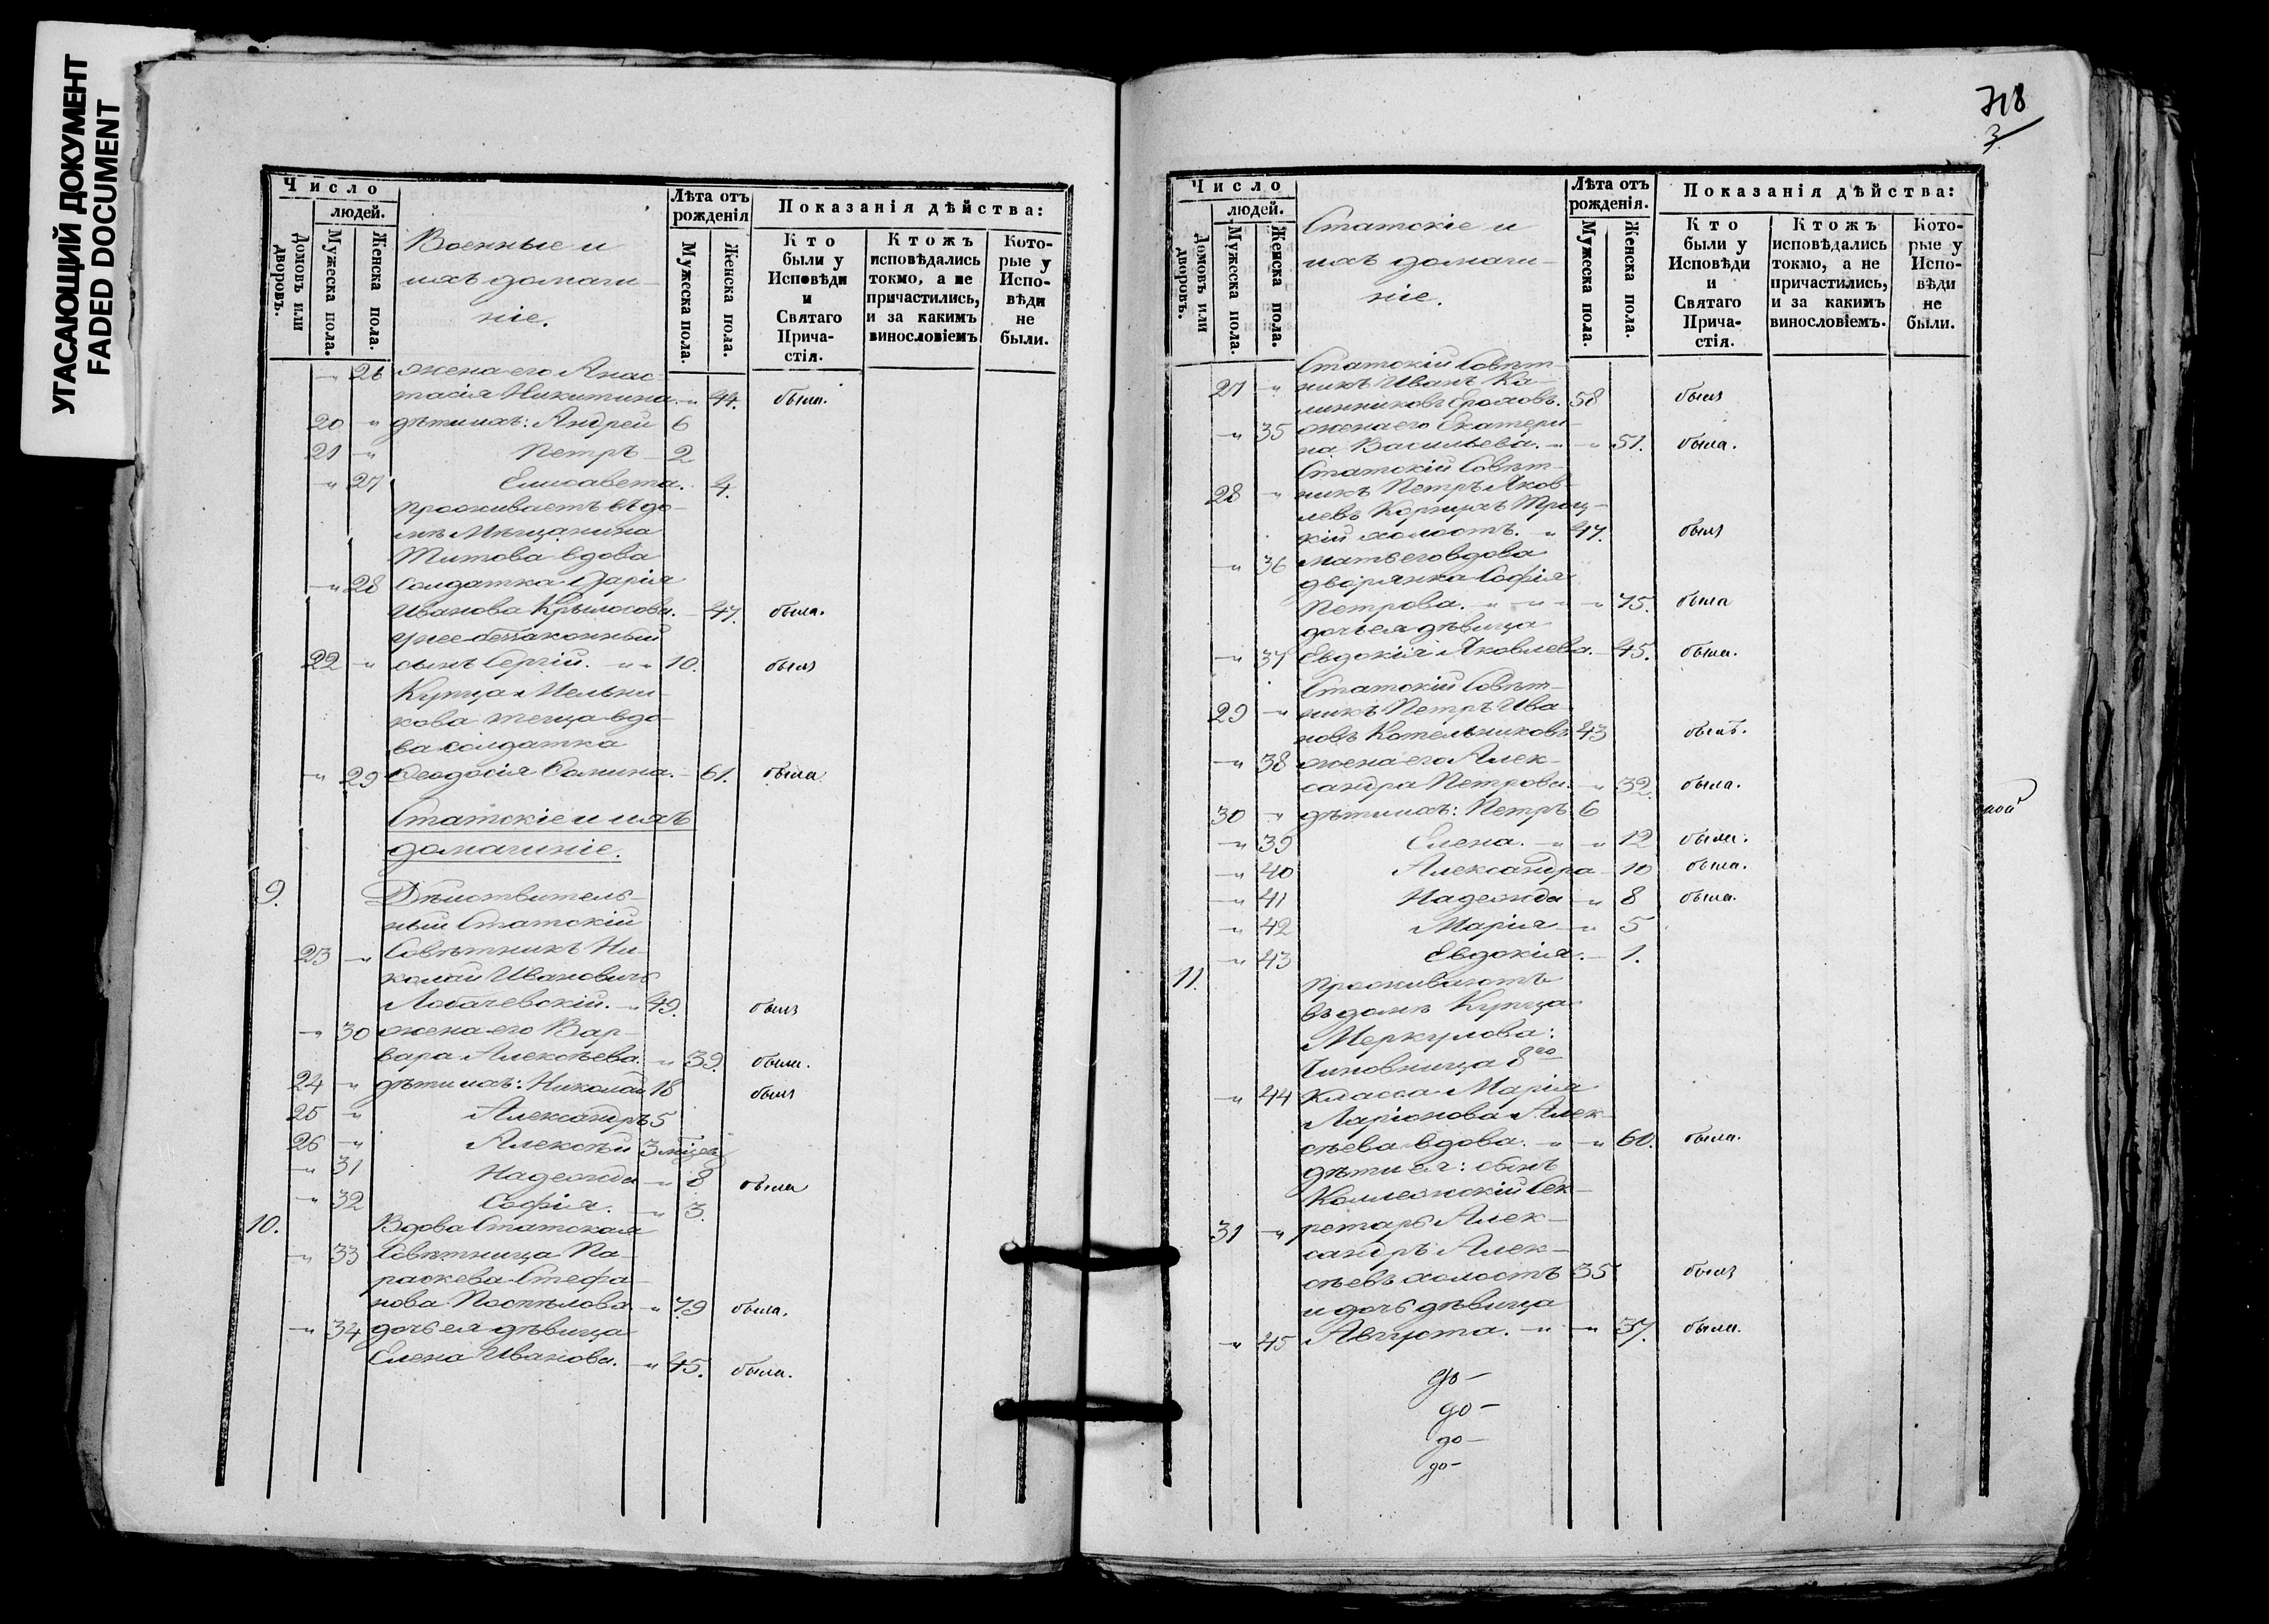 УГАСАЮЩИЙ ДОКУМЕНТ
FADED DOCUMENT
Число
людей.
Домовъ или дворовъ.
Мужеска пола.
Женска пола.
Военные и
ихъ домаш-
ніе.
Лѣта отъ рожденія
Мужеска пола.
Женска пола.
Показанія дѣйства:
Кто были у Исповѣди и Святаго Прича-стія.
Ктожъ исповѣдались токмо, а не причастились, и за какимъ винословіемъ
Кото-рые у Испо-вѣди не были.
" 26 жена его Анас-
тасія Никитина. " 44. была.
20 " дѣти ихъ: Андрей 6
21 " Петръ 2
" 27 Елисавета. 4.
проживаетъ въ до-
мѣ Мѣщанина
Титова вдова
" 28 солдатка Дарія
Иванова Крылосова. 47. была.
у нее беззаконный
22 " сынъ Сергій. " " 10. былъ
Купца Мельни-
кова теща вдо-
ва солдатка
" 29 Феодосія Фомина. 61. была
Статскіе и ихъ
домашніе.
9. Дѣйствитель-
ный Статскій
23 " Совѣтникъ Ни-
колай Ивановичъ
Лобачевскій. " 49. былъ
" 30 жена его Вар-
вара Алексѣева. " 39. была.
24 " дѣти ихъ: Николай 18 былъ
25 " Александръ 5
26 " Алексѣй 3 мѣсец.
" 31 Надежда " 8 была
" 32 Софія. " 3.
10. Вдова Статская
" 33 Совѣтница Па-
раскева Стефа-
нова Поспѣлова " 79 была.
" 34 дочь ея дѣвица
Елена Иванова. " 45. была.
718
3
Число
людей.
Домовъ или дворовъ.
Мужеска пола.
Женска пола.
Статскіе и
ихъ домаш-
ніе.
Лѣта отъ рожденія.
Мужеска пола.
Женска пола.
Показанія дѣйства:
Кто были у Исповѣди и Святаго Прича-стія.
Ктожъ исповѣдались токмо, а не причастились, и за какимъ винословіемъ.
Кото-рые у Испо-вѣди не были.
Статскій Совѣт-
27 " никъ Иванъ Ка-
линниковъ Ероховъ. 58 былъ
" 35 жена его Екатери-
на Васильева. " " 51. была.
Статскій Совѣт-
28 " никъ Петръ Яков-
левъ Корнухъ Троц-
кій холостъ. " 47. былъ
" 36 мать его вдова
дворянка Софія
Петрова. " " " 75. была
дочь ея дѣвица
" 37 Евдокія Яковлева. 45. была.
Статскій Совѣт-
29 " никъ Петръ Ива-
новъ Котельниковъ 43 былъ.
" 38 жена его Алек-
сандра Петрова. " 32. была.
30 " дѣти ихъ: Петръ 6
" 39 Елена. " " 12 была.
" 40 Александра 10 была.
" 41 Надежда " 8 была.
" 42 Марія " 5
" 43 Евдокія. 1.
11. проживаютъ
въ домѣ Купца
Меркулова:
Чиновница 8го
" 44 класса Марія
Ларіонова Алек-
сѣева вдова. " " 60. была.
дѣти ея: сынъ
Коллежскій Сек-
31 " ретарь Алек-
сандръ Алек-
сѣевъ холостъ 35 былъ
и дочь дѣвица
" 45 Августа. " " 37. была.
до-
до-
до-
до-